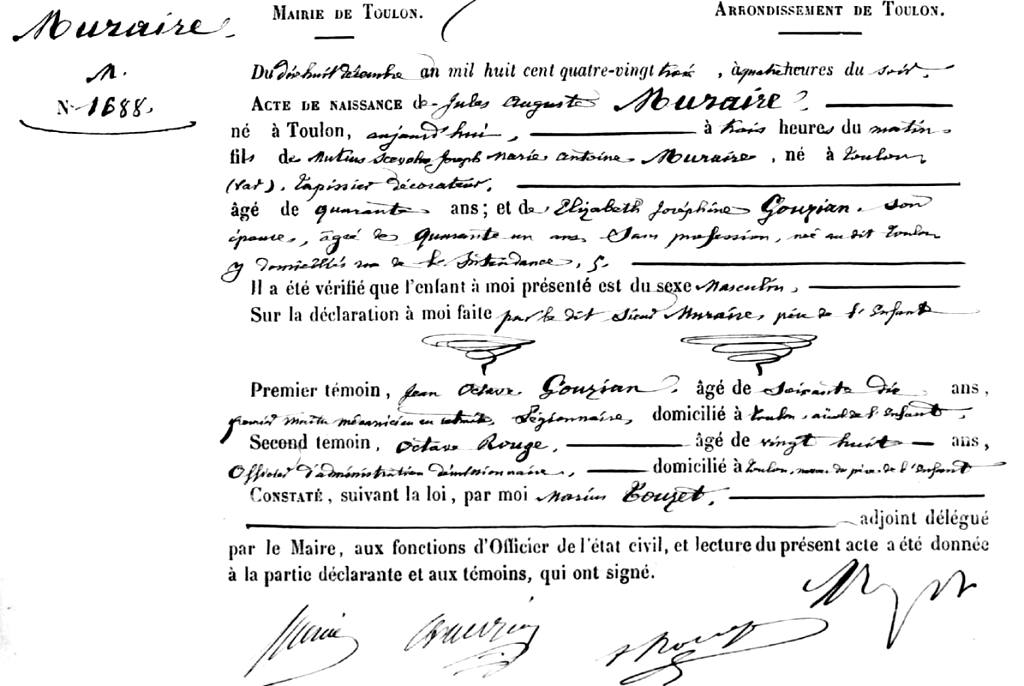 MAIRIE DE TOULON.
ARRONDISSEMENT DE TOULON.
Muraire.
M.
N° 1688.
Du dix huit décembre an mil huit cent quatre-vingt trois, à quatre heures du soir.
ACTE DE NAISSANCE de Jules Auguste Muraire.
né à Toulon, aujourd'hui, à trois heures du matin
fils de Mutius Scevola Joseph Marie Antoine Muraire, né à Toulon
(Var), tapissier décorateur,
âgé de quarante ans; et de Elizabeth Joséphine Gouzian. son
épouse, âgée de quarante un ans, sans profession, née au dit Toulon
y domiciliés rue de l'Intendance, 5.
Il a été vérifié que l'enfant à moi présenté est du sexe Masculin.
Sur la déclaration à moi faite par le dit Sieur Muraire, père de l'enfant
Premier témoin, Jean Octave Gouzian. âgé de soixante dix ans,
premier maître mécanicien en retraite, Légionnaire, domicilié à Toulon, aïeul de l'enfant.
Second temoin, Octave Rouge, âgé de vingt huit ans,
Officier d'administration démissionnaire, domicilié à Toulon, de l'enfant
CONSTATÉ, suivant la loi, par moi Marius Touzet,
adjoint délégué
par le Maire, aux fonctions d'Officier de l'état civil, et lecture du présent acte a été donnée
à la partie déclarante et aux témoins, qui ont signé.